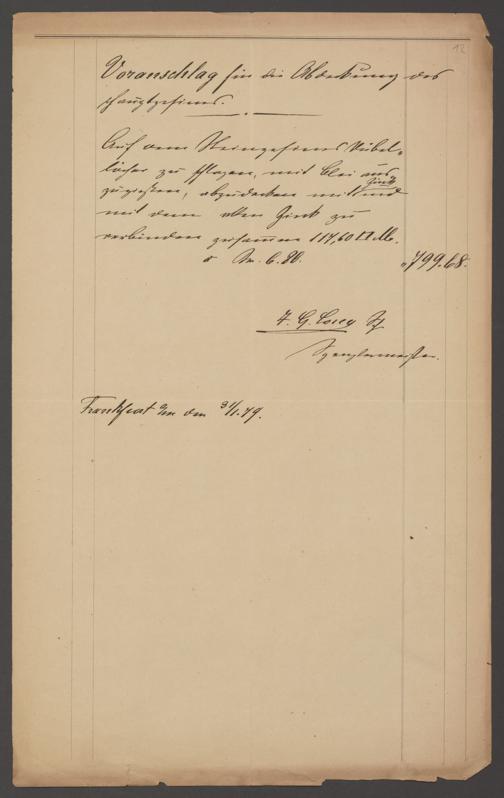 12
Voranschlag für die Abdekung des
Hauptgesims.
Auf dem Steingesims Dübel-
löcher zu schlagen, mit Blei aus
zugießen, abzudecken mit Zink und
mit dem alten Zink zu
verbinden zusammen 117,60 □ M.
a M. 6.80.
" 799.68.
F. G.
Spenglermeister.
Frankfurt a/m den 31/1. 79.